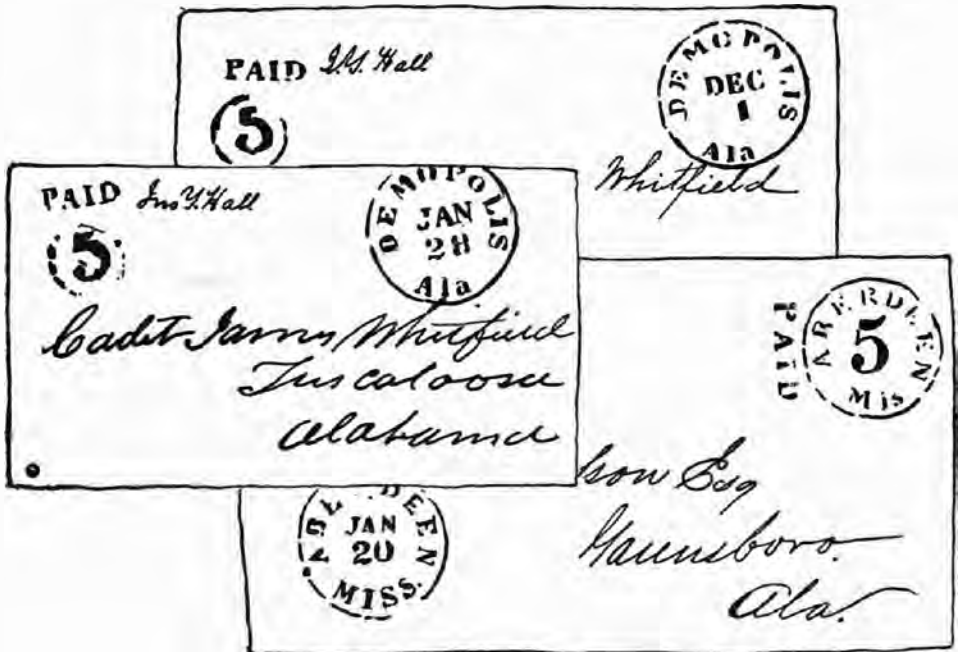 PAID J.Y. Hall
5
DEMOPOLIS
DEC
1
Ala
Whitfield
PAID Jno Y. Hall
5
DEMOPOLIS
JAN
28
Ala
Cadet James Whitfield
Tuscaloosa
Alabama
PAID
ABERDEEN
5
Mis
son Esq
Greensboro.
Ala.
ABERDEEN
JAN
20
MISS.